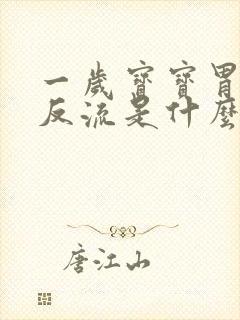 一歲寶寶胃
反流是什麼
唐江山